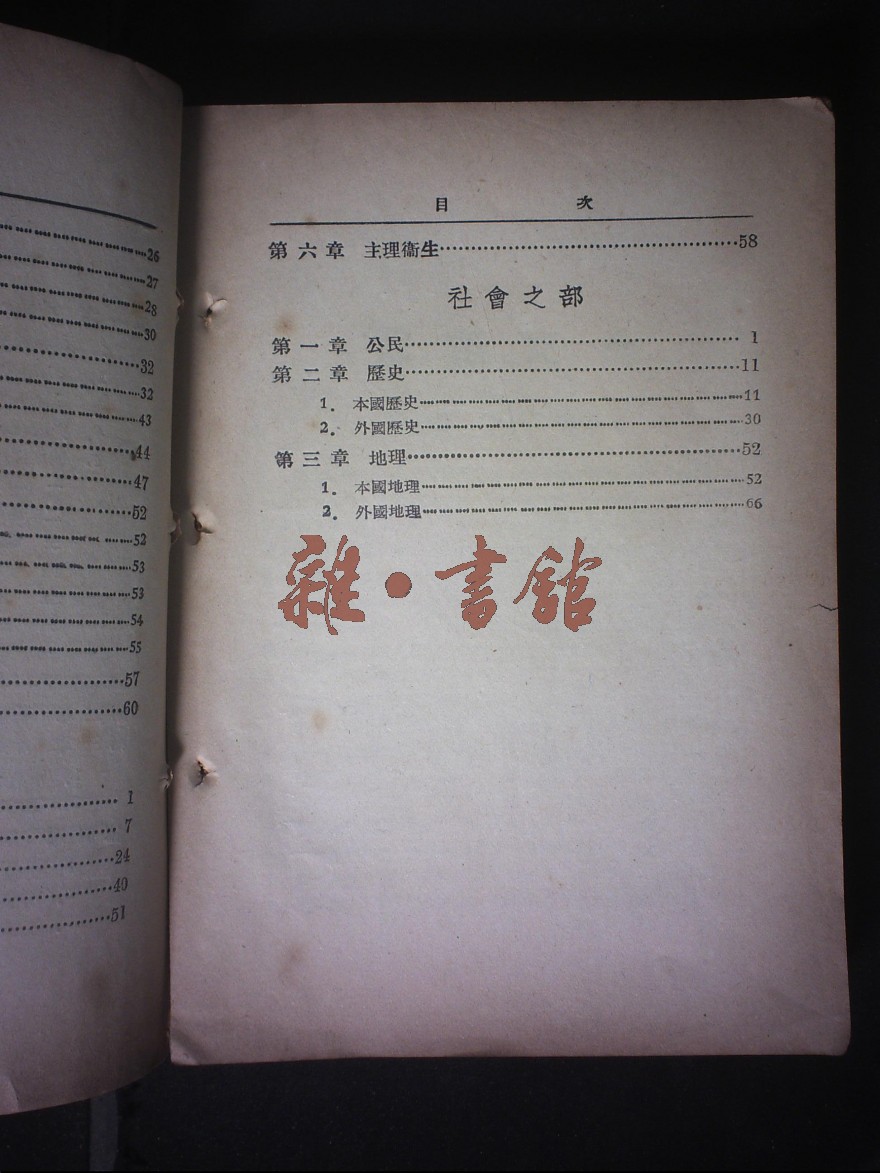 26
27
28
30
32
32
43
44
47
52
52
53
53
54
55
57
60
1
7
24
40
51
目 次
第六章 主理衞生……58
社會之部
第一章 公民……1
第二章 歷史……11
1. 本國歷史……11
2. 外國歷史……30
第三章 地理……52
1. 本國地理……52
2. 外國地理……66
雜·書館